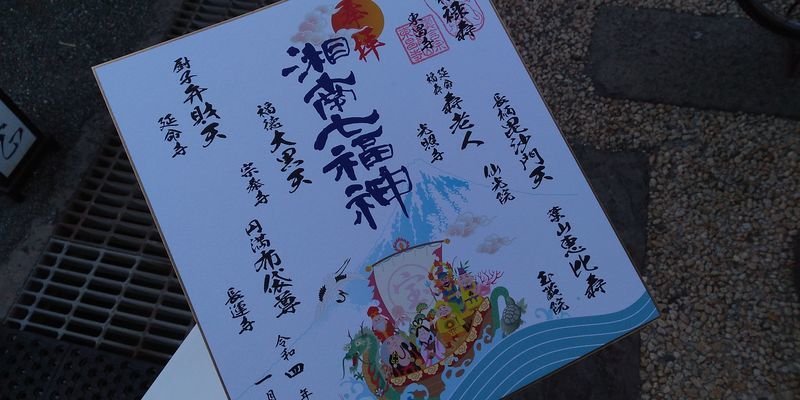 奉拝
湘南七福神
禄寿
東昌寺
延命
福寿
寿老人
光照寺
長柄毘沙門天
仙光院
葉山恵比寿
玉蔵院
福徳
大黒天
宗泰寺
円満布袋尊
長運寺
厨子弁財天
延命寺
令和四年
一月
宝